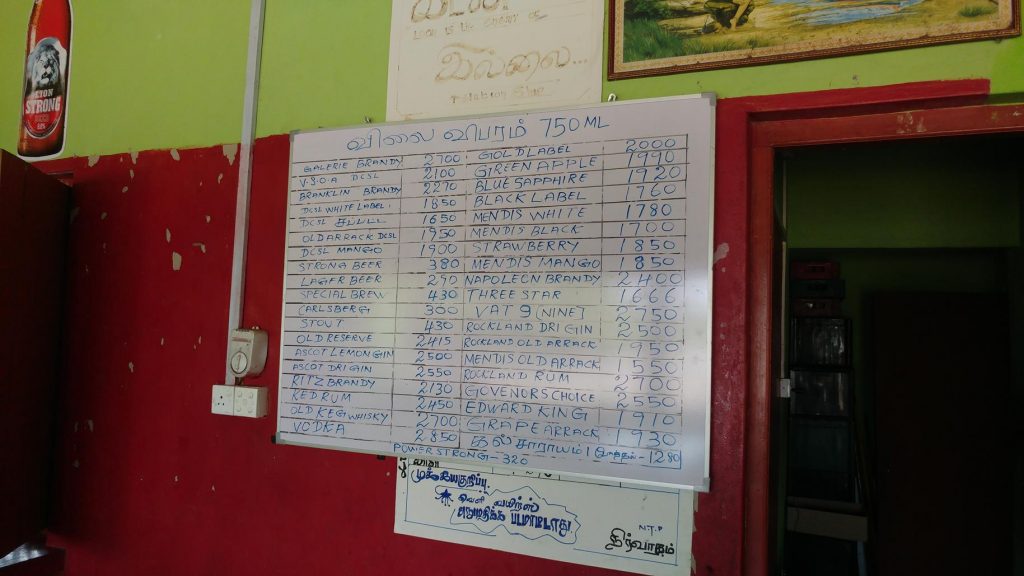 LION
STRONG
கடன்
இல்லை...
விலை விபரம் 750 ML
GALERIE BRANDY 2700 GOLD LABEL 2000
V.S.O.A DCSL 2100 GREEN APPLE 1990
BRANKLIN BRANDY 2270 BLUE SAPPHIRE 1920
DCSL WHITE LABEL. 1850 BLACK LABEL 1760
DCSL 1650 MENDIS WHITE 1780
OLD ARRACK DCSL 1950 MENDIS BLACK 1700
DCSL MANGO 1900 STRAWBERRY 1850
STRONG BEER 380 MENDIS MANGO 1850
LAGER BEER 290 NAPOLEON BRANDY 2400
SPECIAL BREW 430 THREE STAR 1666
CARLSBERG 300 VAT 9 (NINE) 2750
STOUT 430 ROCKLAND DRI GIN 2500
OLD RESERVE 2415 ROCKLAND OLD ARRACK 1950
ASCOT LEMON GIN 2500 MENDIS OLD ARRACK 1550
ASCOT DRI GIN 2550 ROCKLAND RUM 2700
RITZ BRANDY 2130 GOVENORS CHOICE 2550
RED RUM 2450 EDWARD KING 1910
OLD KEG WHISKY 2700 GRAPE ARRACK 1930
VODKA 2850 சாராயம் 1 போத்தல் - 1280
POWER STRONG - 320
முக்கியகுறிப்பு.
வெளி வயிற்ஸ்
அனுமதிக்க படமாட்டாது
N.T.P
நிர்வாகம்